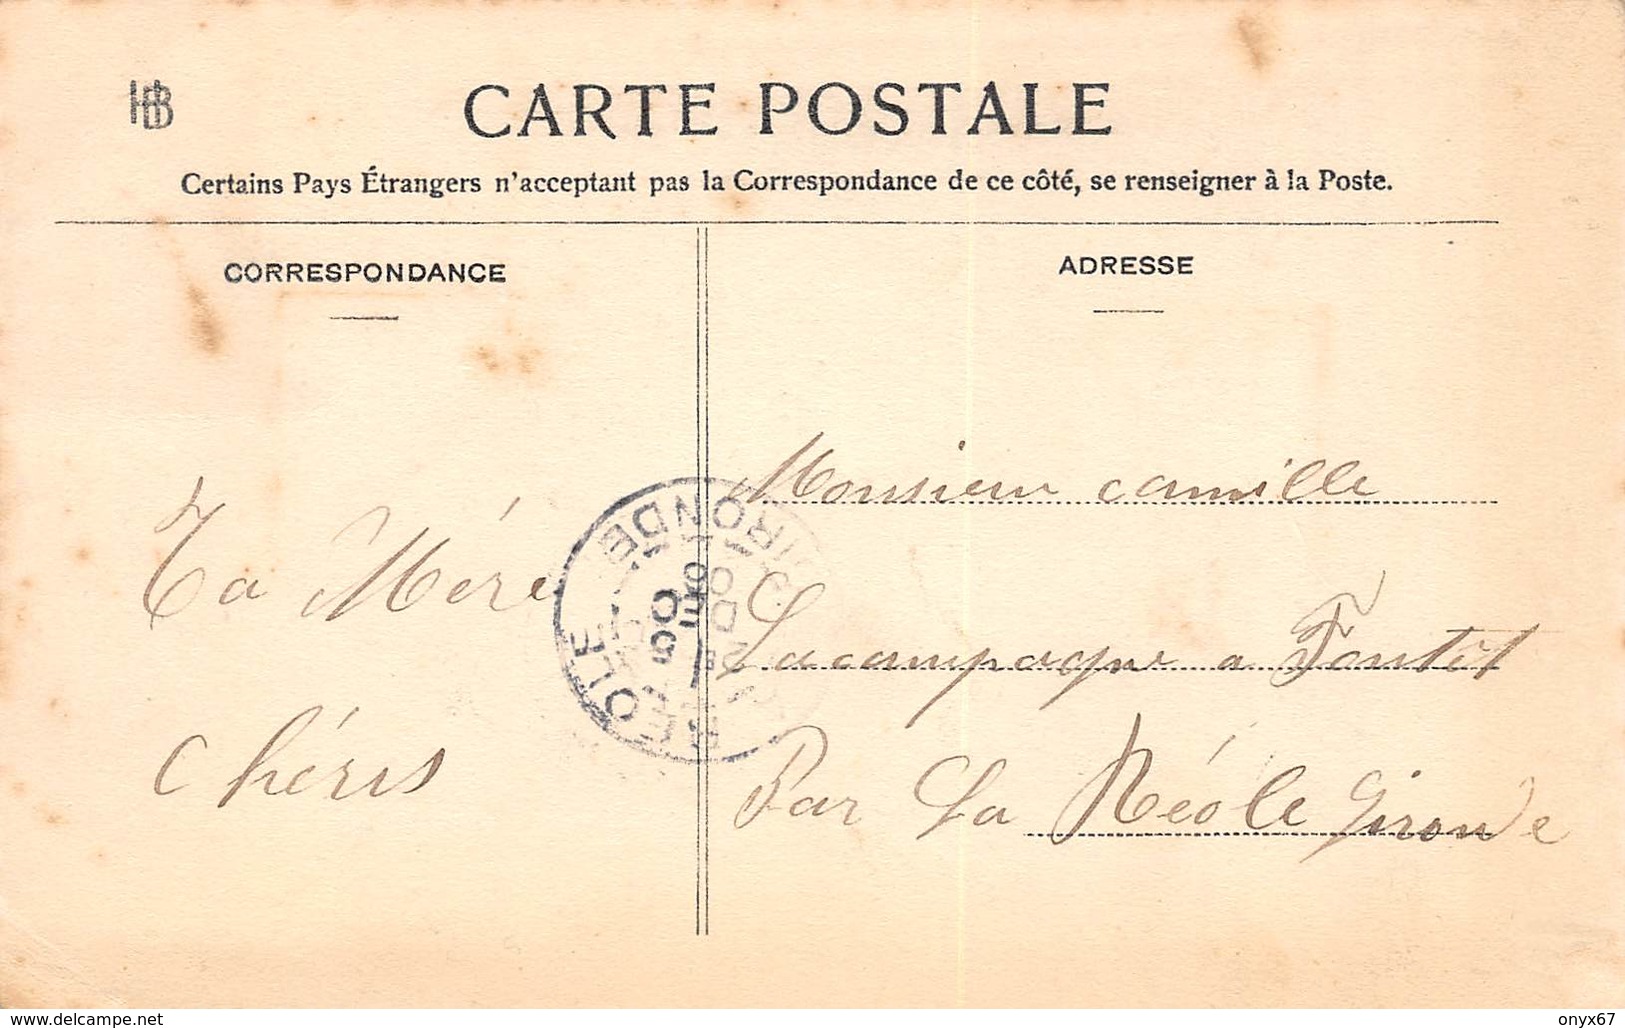 HB
CARTE POSTALE
Certains Pays Étrangers n'acceptant pas la Correspondance de ce côté, se renseigner à la Poste.
CORRESPONDANCE
ADRESSE
Ta Méré
Chéris
Monsieur camille
Lacampagne a Fontet
Par La Réole Gironde
REOLE
GIRONDE
delcampe.net
onyx67